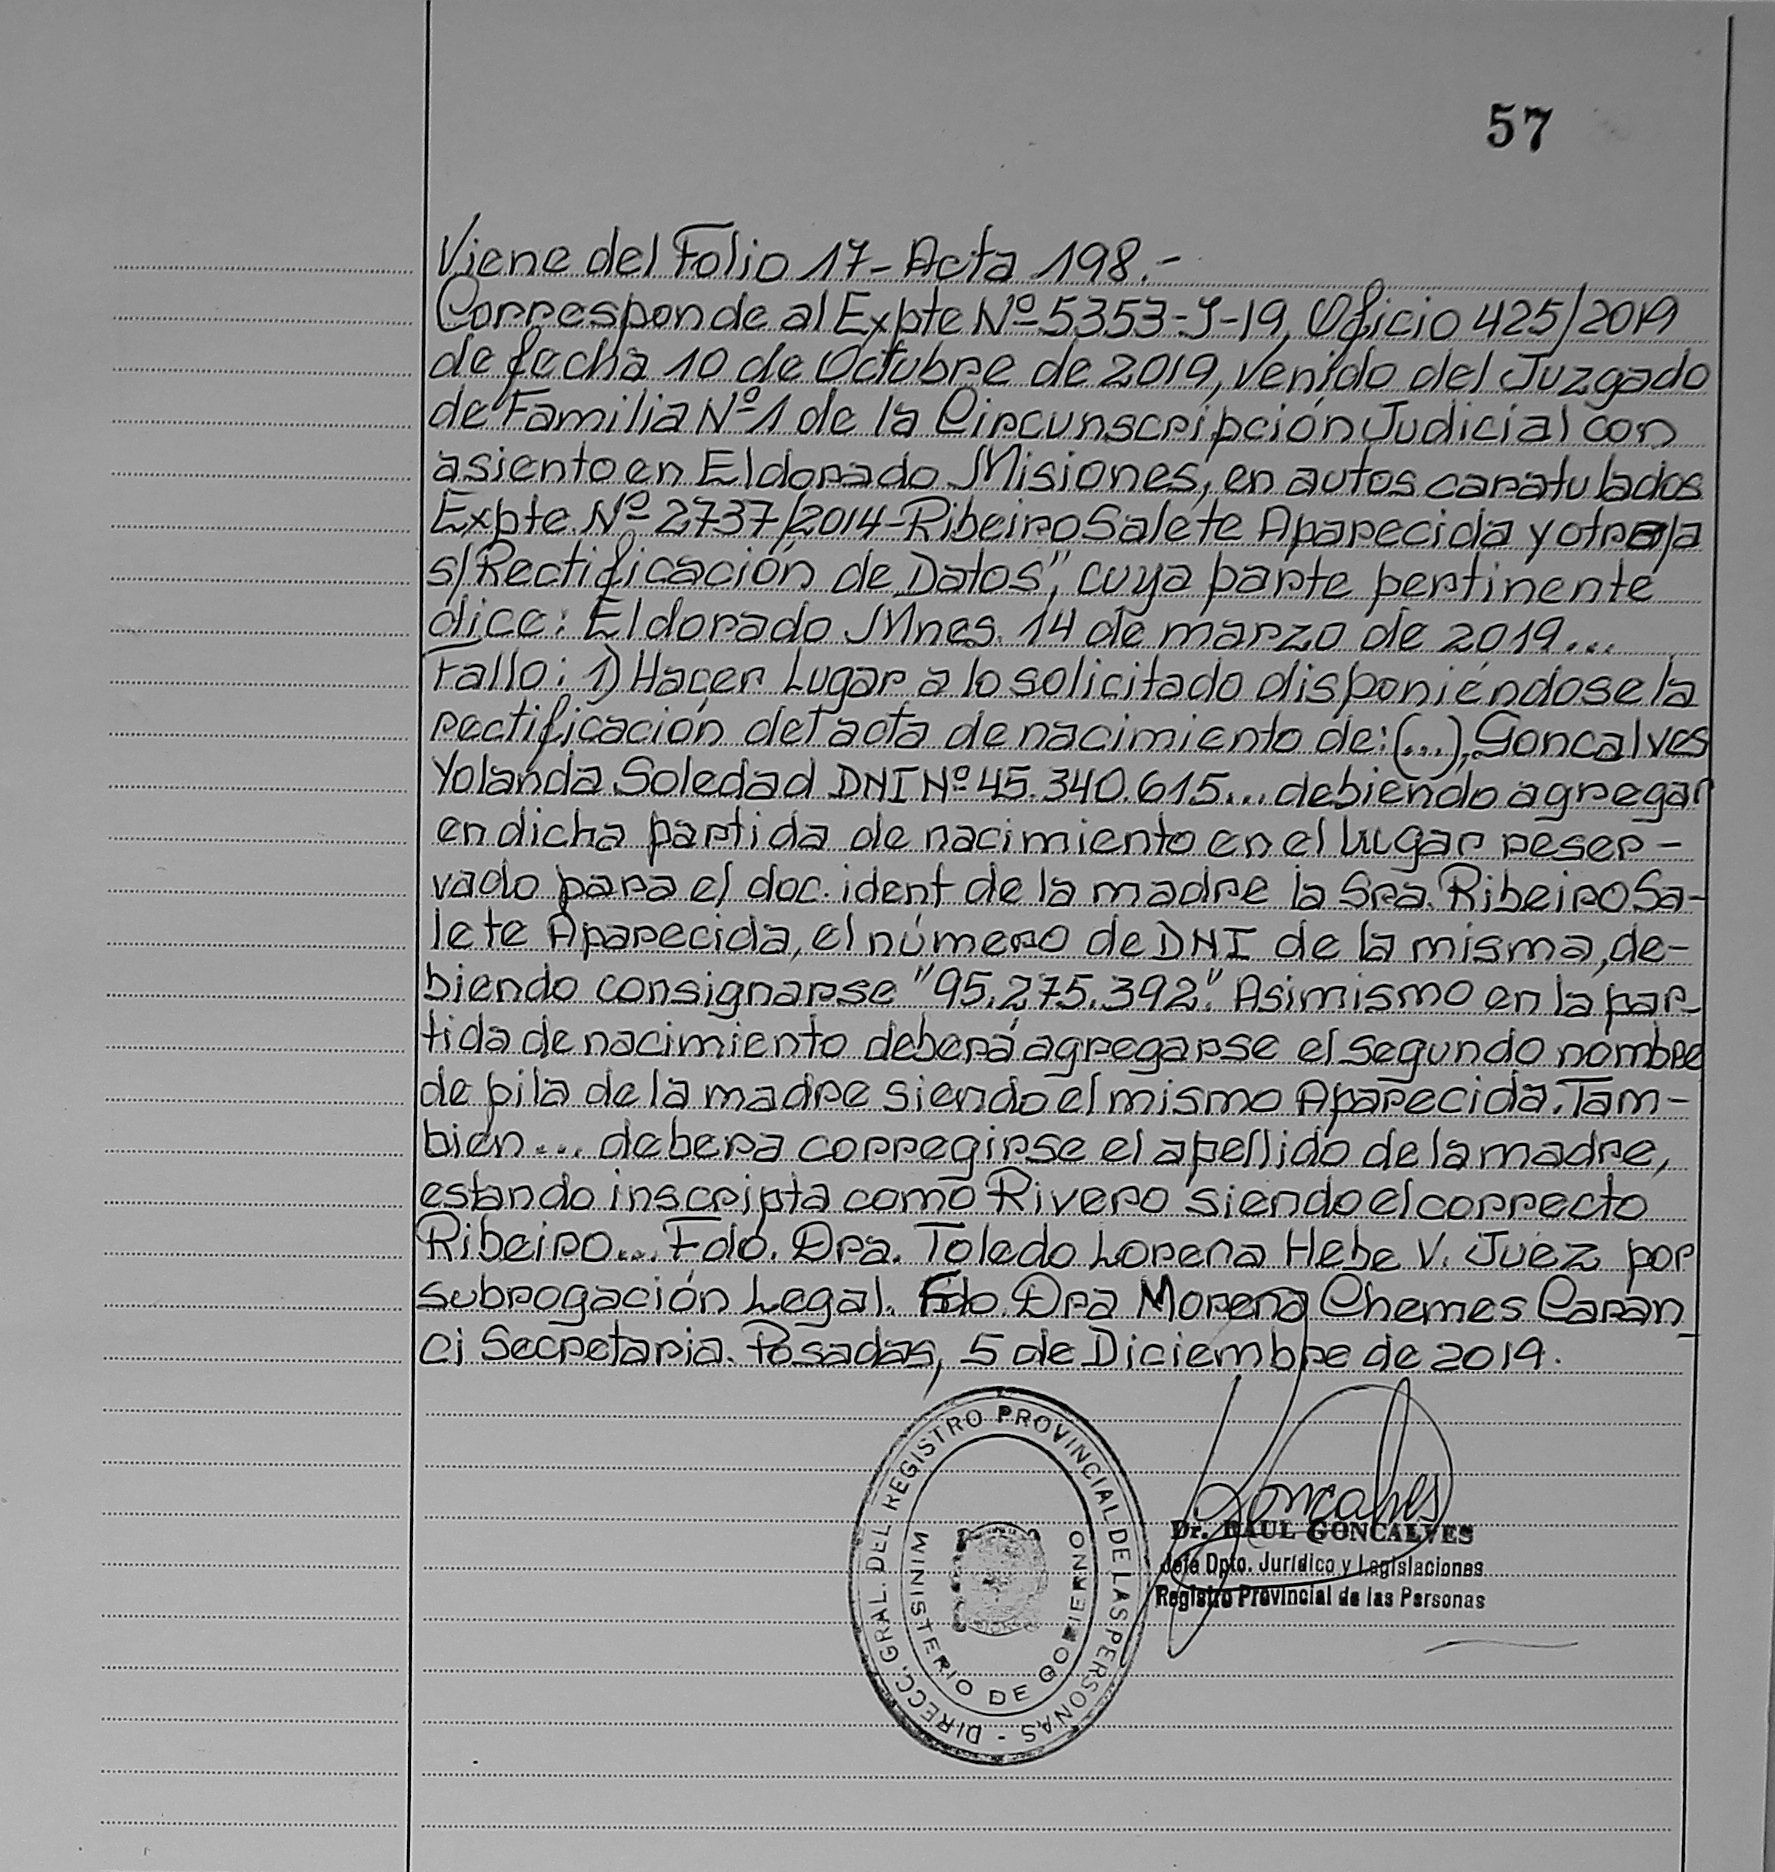 57
Viene del Folio 17-Acta 198.-
Corresponde al Expte Nº 5353-J-19, Oficio 425/2019
de fecha 10 de Octubre de 2019, venido del Juzgado
de Familia Nº 1 de la Circunscripción Judicial con
asiento en Eldorado Misiones, en autos caratulados
Expte. Nº 2737/2014-Ribeiro Salete Aparecida y otro/a
s/Rectificación de Datos", cuya parte pertinente
dice: Eldorado Mnes. 14 de marzo de 2019...
Fallo: 1) Hacer Lugar a lo solicitado disponiéndose la
rectificación del acta de nacimiento de: (...), Goncalves
Yolanda Soledad DNI Nº 45.340.615... debiendo agregar
en dicha partida de nacimiento en el lugar reser-
vado para el doc. ident de la madre la Sra. Ribeiro Sa-
lete Aparecida, el número de DNI de la misma, de-
biendo consignarse "95.275.392". Asimismo en la par-
tida de nacimiento deberá agregarse el segundo nombre
de pila de la madre siendo el mismo Aparecida. Tam-
bién... debera corregirse el apellido de la madre,
estando inscripta como Rivero siendo el correcto
Ribeiro... Fdo. Dra. Toledo Lorena Hebe V. Juez por
subrogación Legal. Fdo. Dra Morena Chemes Caran_
ci Secretaria. Posadas, 5 de Diciembre de 2019.
DIRECC. GRAL. DEL REGISTRO PROVINCIAL DE LAS PERSONAS -
MINISTERIO DE GOBIERNO
Goncalves
Dr. RAUL GONCALVES
Jefe Dpto. Jurídico y Legislaciones
Registro Provincial de las Personas